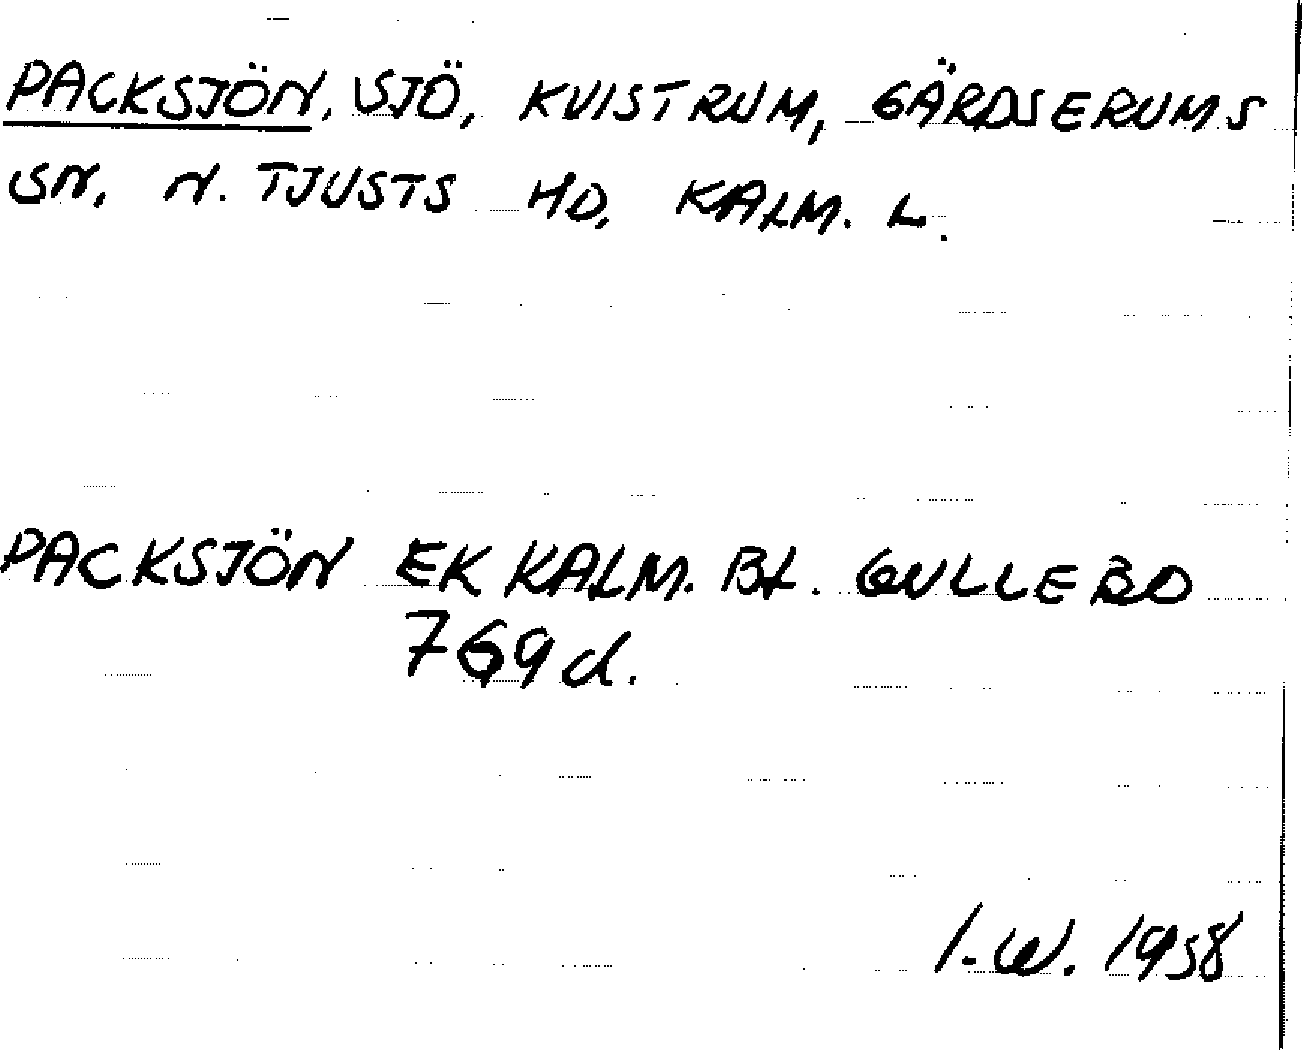 PACKSJÖN, SJÖ, KVISTRUM, GÄRDSERUMS
SN, N. TJUSTS HD, KALM. L.
PACKSJÖN EK KALM. BL. GULLEBO
769 d.
I. W. 1958